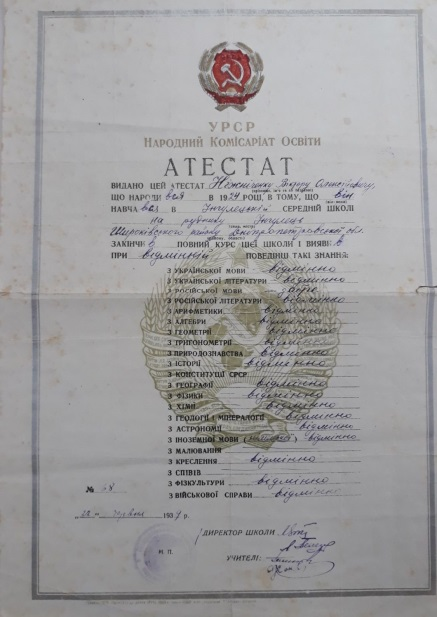 УРСР
НАРОДНИЙ КОМІСАРІАТ ОСВІТИ
АТЕСТАТ
ВИДАНО ЦЕЙ АТЕСТАТ
ЩО НАРОДИВСЯ В 1924 РОЦІ, В ТОМУ, ЩО він
НАВЧАВСЯ В Інгулецькій СЕРЕДНІЙ ШКОЛІ
на руднику Інгулець
Широківського району Дніпропетровської обл.
ЗАКІНЧИВ ПОВНИЙ КУРС ЦІЄЇ ШКОЛИ І ВИЯВИВ
ПРИ відмінній ПОВЕДІНЦІ ТАКІ ЗНАННЯ:
З УКРАЇНСЬКОЇ МОВИ відмінно
З УКРАЇНСЬКОЇ ЛІТЕРАТУРИ відмінно
З РОСІЙСЬКОЇ МОВИ
З РОСІЙСЬКОЇ ЛІТЕРАТУРИ відмінно
З АРИФМЕТИКИ відмінно
З АЛГЕБРИ відмінно
З ГЕОМЕТРІЇ відмінно
З ТРИГОНОМЕТРІЇ відмінно
З ПРИРОДОЗНАВСТВА відмінно
З ІСТОРІЇ відмінно
З КОНСТИТУЦІЇ СРСР
З ГЕОГРАФІЇ відмінно
З ФІЗИКИ відмінно
З ХІМІЇ відмінно
З ГЕОЛОГІЇ І МІНЕРАЛОГІЇ відмінно
З АСТРОНОМІЇ відмінно
З ІНОЗЕМНОЇ МОВИ відмінно
З МАЛЮВАННЯ
З КРЕСЛЕННЯ відмінно
З СПІВІВ
З ФІЗКУЛЬТУРИ відмінно
З ВІЙСЬКОВОЇ СПРАВИ відмінно
№
червня р.
ДИРЕКТОР ШКОЛИ
М. П.
УЧИТЕЛІ: